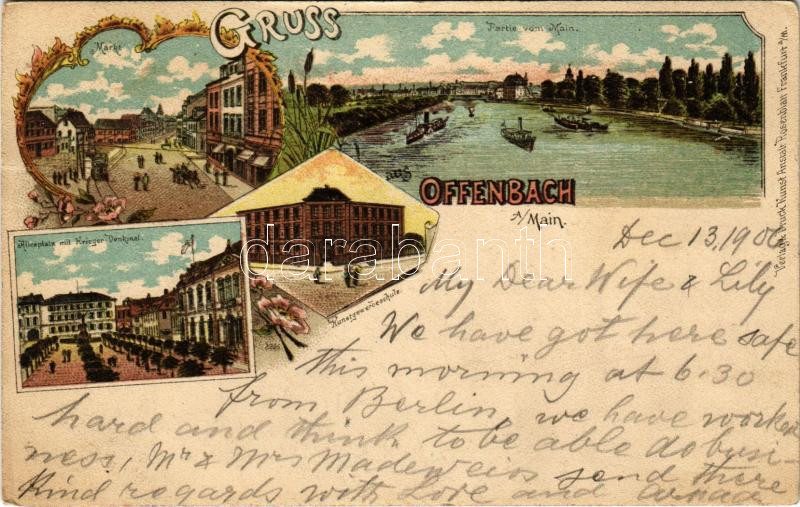 GRUSS
Markt
Partie vom Main.
aus
OFFENBACH
a/Main.
Aliceplatz mit Krieger-Denkmal.
Kunstgewerbeschule.
Verlag u. Druck Kunst Anstalt Rosenblatt Frankfurt a/M.
darabanth
Dec 13, 1900
My Dear Wife & Lily
We have got here safe
this morning at 6.30
from Berlin, we have worked
hard and think to be able do busi-
ness, Mr & Mrs send there
Kind regards with Love and